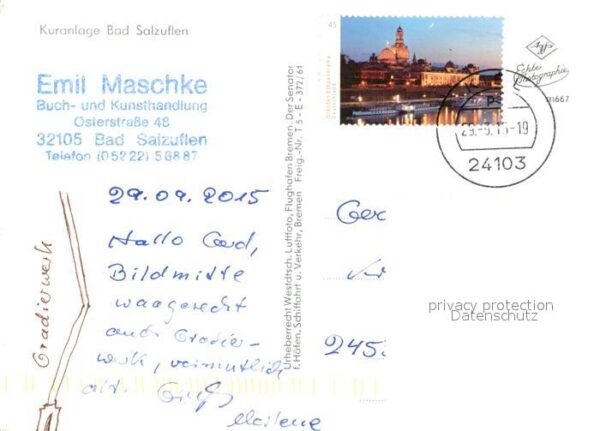 Kuranlage Bad Salzuflen
Emil Maschke
Buch- und Kunsthandlung
Osterstraße 48
32105 Bad Salzuflen
Telefon (05222) 58887
29.09.2015
Hallo Gerd,
Bildmitte
waagerecht
ein Gradier-
werk, vermutlich
Marlene
Gradierwerk
Urheberrecht Westdtsch. Luftfoto, Flughafen Bremen. Der Senator
f. Häfen, Schiffahrt u. Verkehr, Bremen Freig.-Nr. T 5 - E - 372/61
45
Agfa
Echte
Photographie
24103
Ger
245
privacy protection
Datenschutz